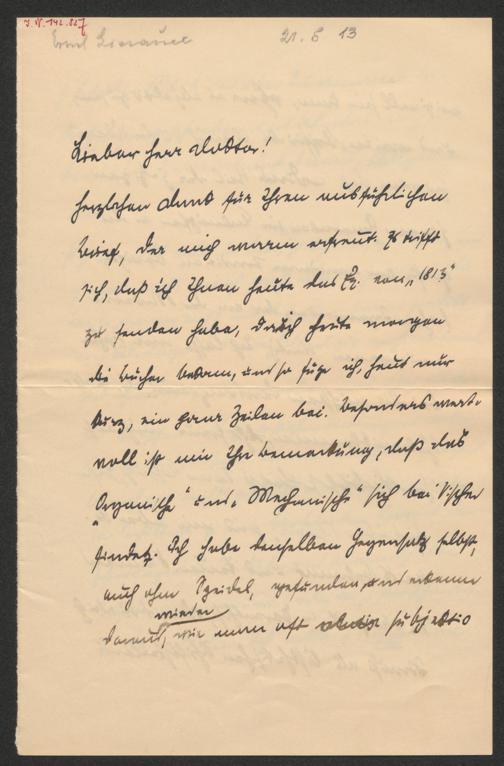 J.N. 142.527
21. 5 13
Lieber Herr Doktor!
Herzlichen Dank für Ihren ausführlichen
Brief, der mich warm erfreut. Es trifft
sich, daß ich Ihnen heute das Ex. von „1813“
zu senden habe, da ich heute morgen
die Bücher bekam, und so füge ich, heut nur
kurz, ein paar Zeilen bei. Besonders wert-
voll ist mir Ihre Bemerkung, daß das
„Organische“ und „Mechanische“ sich bei Vischer
findet. Ich habe denselben Gegensatz selbst,
auch ohne Speidel, gefunden und erkenne
daraus wieder, wie man oft subjektiv